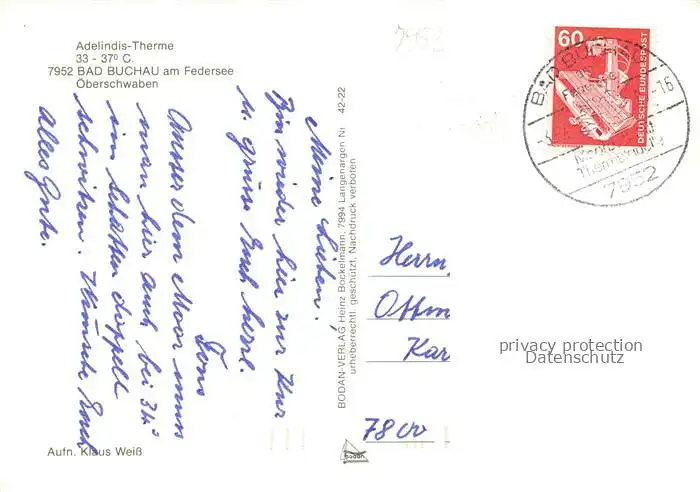 Adelindis-Therme
33 - 37º C.
7952 BAD BUCHAU am Federsee
Oberschwaben
7952
Meine Lieben,
Bin wieder hier zur Kur
u. grüsse Euch herzl.
Toni
Ausser dem Moor muss
man hier auch bei 34°
im Schatten doppelt
schwitzen. Wünsche Euch
alles Gute.
BODAN-VERLAG Heinz Bockelmann, 7994 Langenargen Nr. 42-22
urheberrechtl. geschützt, Nachdruck verboten
60
DEUTSCHE BUNDESPOST
BAD BUCHAU
am
Federsee
-16
Moor- und
Thermalbad
7952
Herrn
Ottm
Kar
7800
privacy protection
Datenschutz
Aufn. Klaus Weiß
bodan